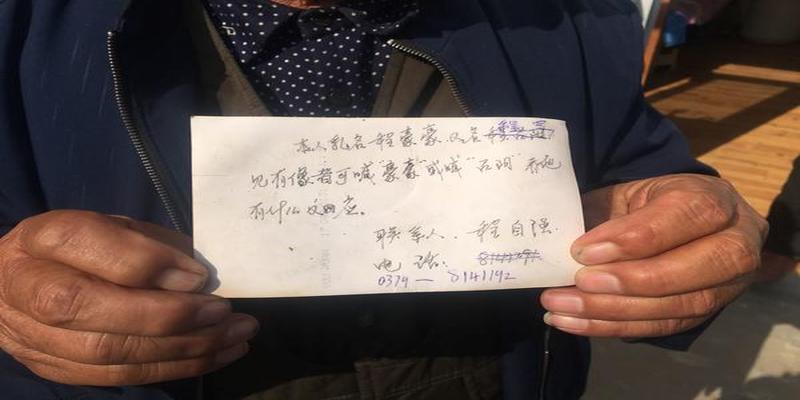 本人乳名程豪豪.又名程
见有像者可喊"豪豪"或喊" 看他
有什么反应。
联系人. 程自强
电话:
0379— 8141192